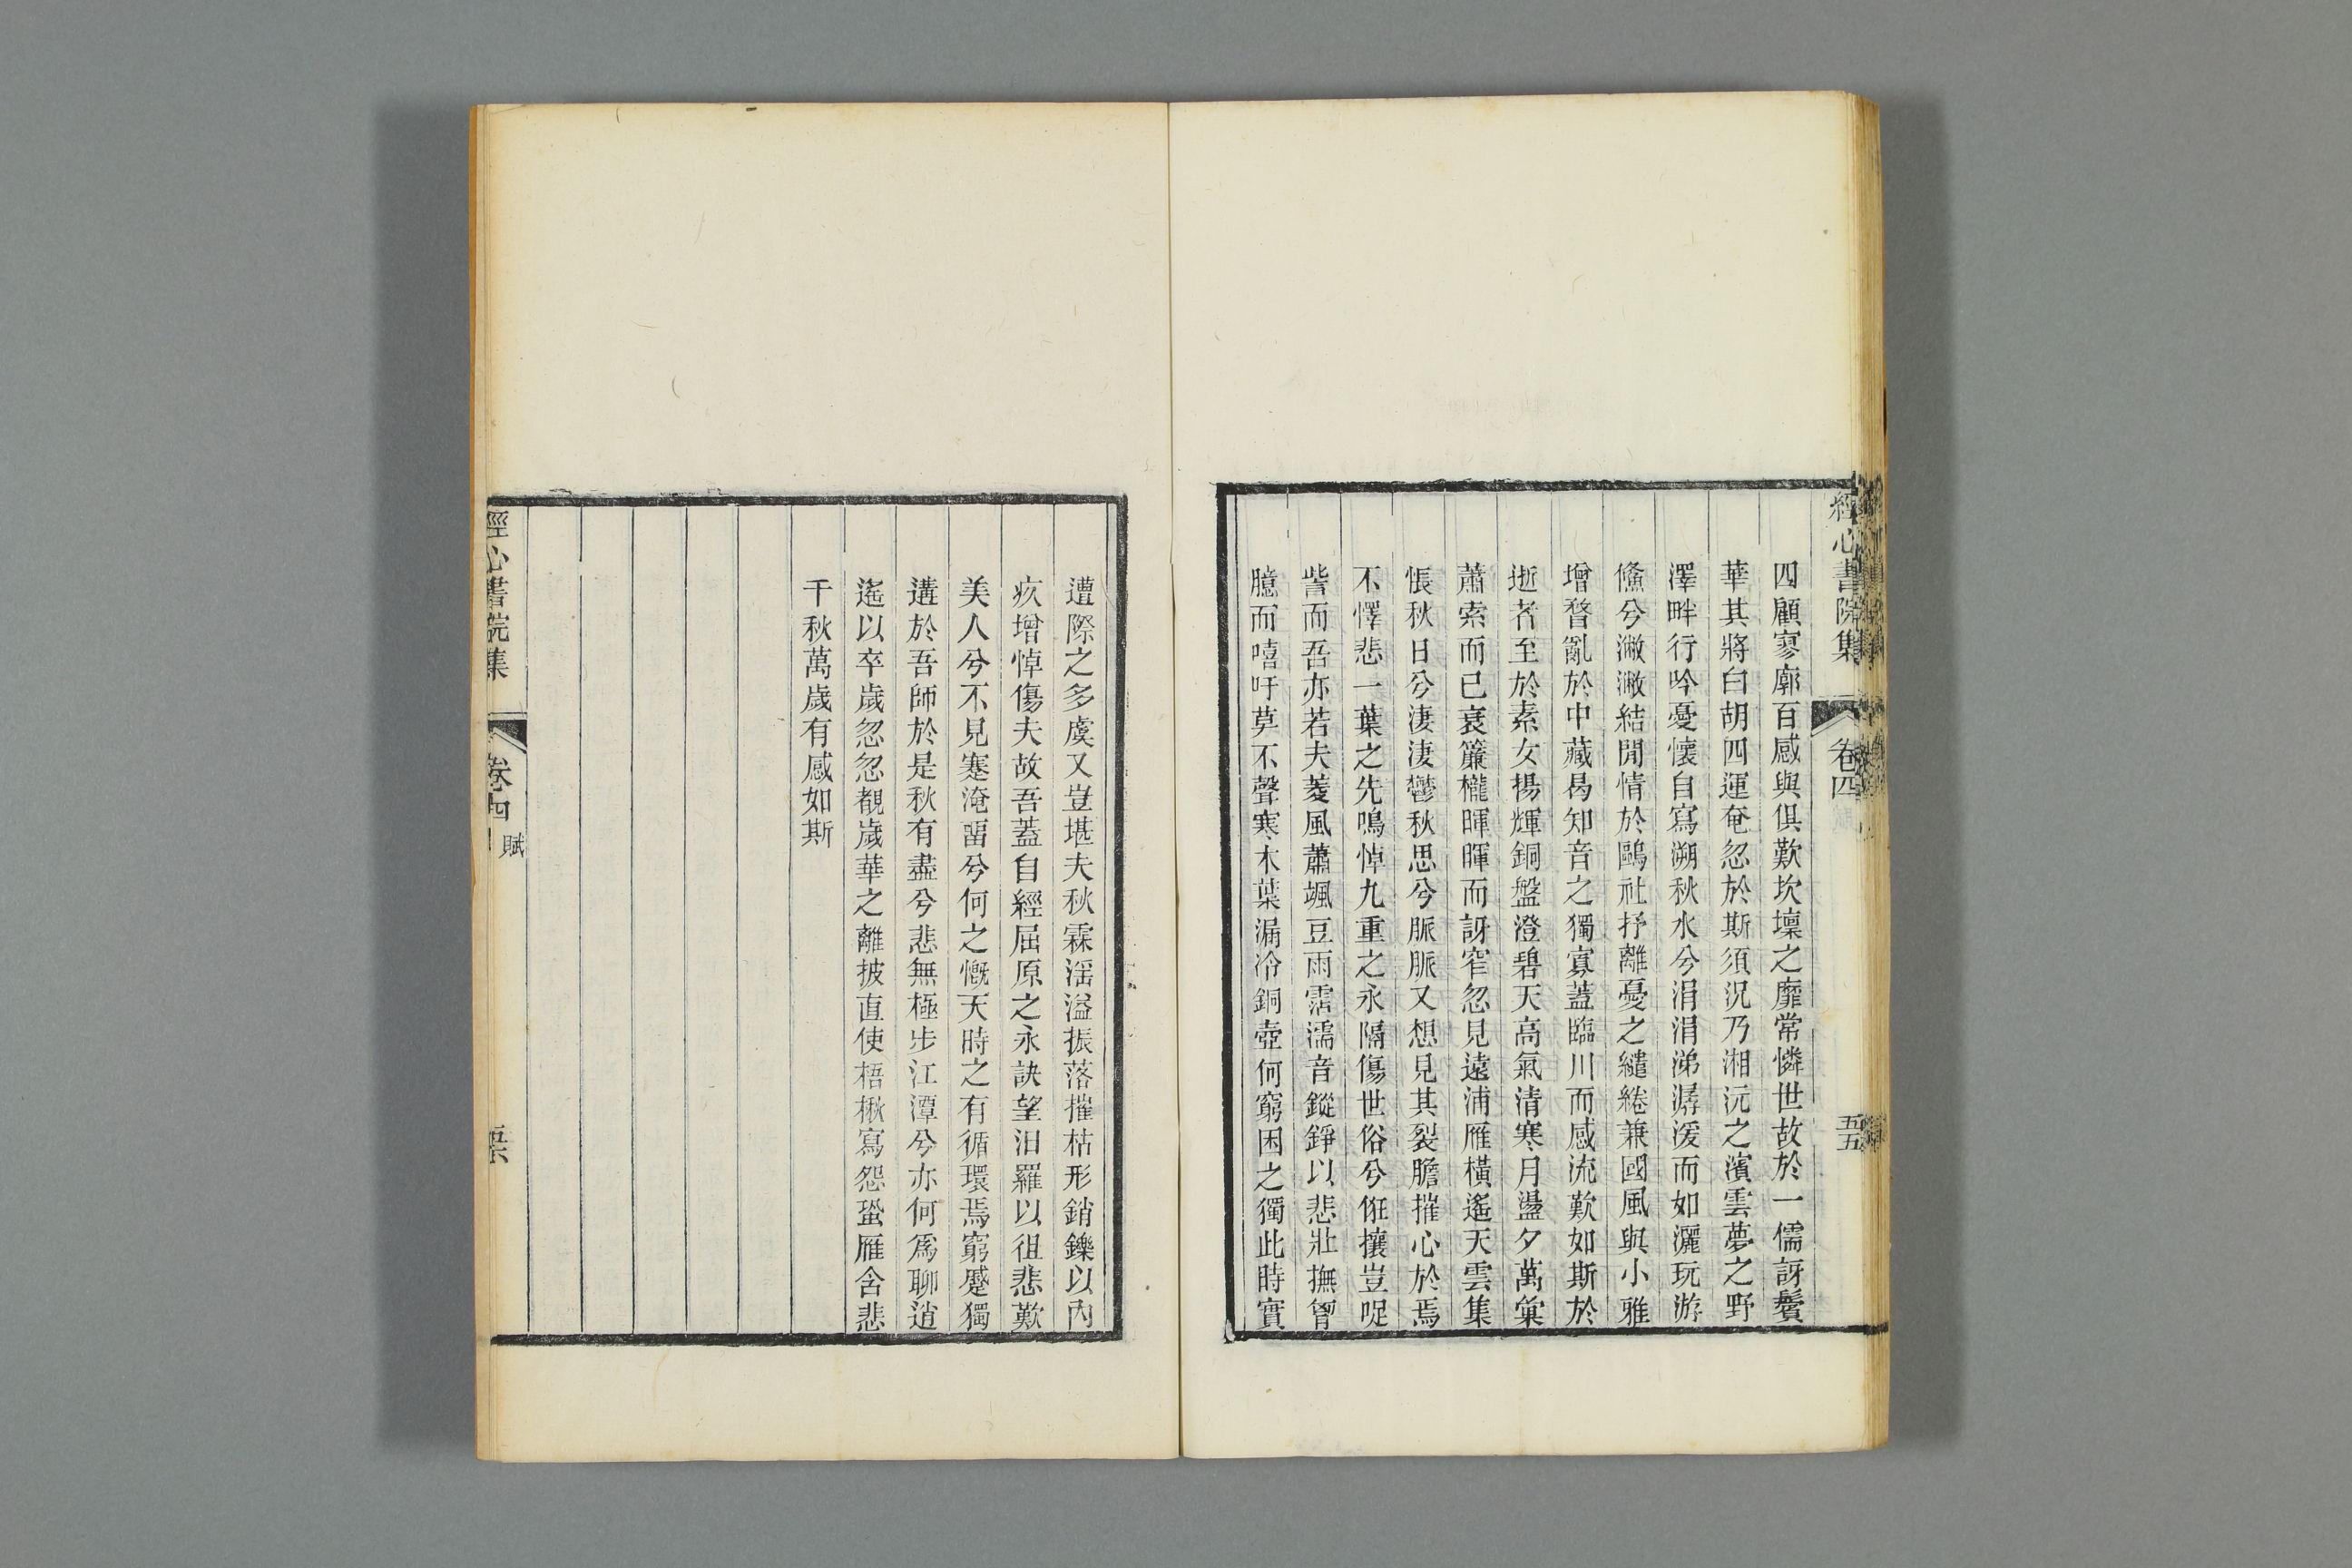 經心書院集
卷四
五五
四顧寥廓百感與俱歎坎壈之靡常憐世故於一儒訝鬢
華其將白胡四運奄忽於斯須況乃湘沅之濱雲夢之野
澤畔行吟憂懷自寫溯秋水兮涓涓涕潺湲而如灑玩游
鯈兮潎潎結閒情於鷗社抒離憂之繾綣兼國風與小雅
增瞀亂於中藏曷知音之獨寡蓋臨川而感流歎如斯於
逝者至於素女揚輝銅盤澄碧天高氣清寒月盪夕萬彙
蕭索而已衰簾櫳暉暉而訝窄忽見遠浦雁橫遙天雲集
悵秋日兮淒淒鬱秋思兮脈脈又想見其裂膽摧心於焉
不懌悲一葉之先鳴悼九重之永隔傷世俗兮俇攘豈哫
訾而吾亦若夫菱風蕭颯豆雨霑濡音鏦錚以悲壯撫曾
臆而嘻吁莫不聲寒木葉漏冷銅壺何窮困之獨此時實
遭際之多虞又豈堪夫秋霖滛溢振落摧枯形銷鑠以內
疚增悼傷夫故吾蓋自經屈原之永訣望汨羅以徂悲歎
美人兮不見蹇淹畱兮何之慨天時之有循環焉窮蹙獨
遘於吾師於是秋有盡兮悲無極步江潭兮亦何爲聊逍
遙以卒歲忽忽覩歲華之離披直使梧楸寫怨蛩雁含悲
千秋萬歲有感如斯
經心書院集
卷四
賦